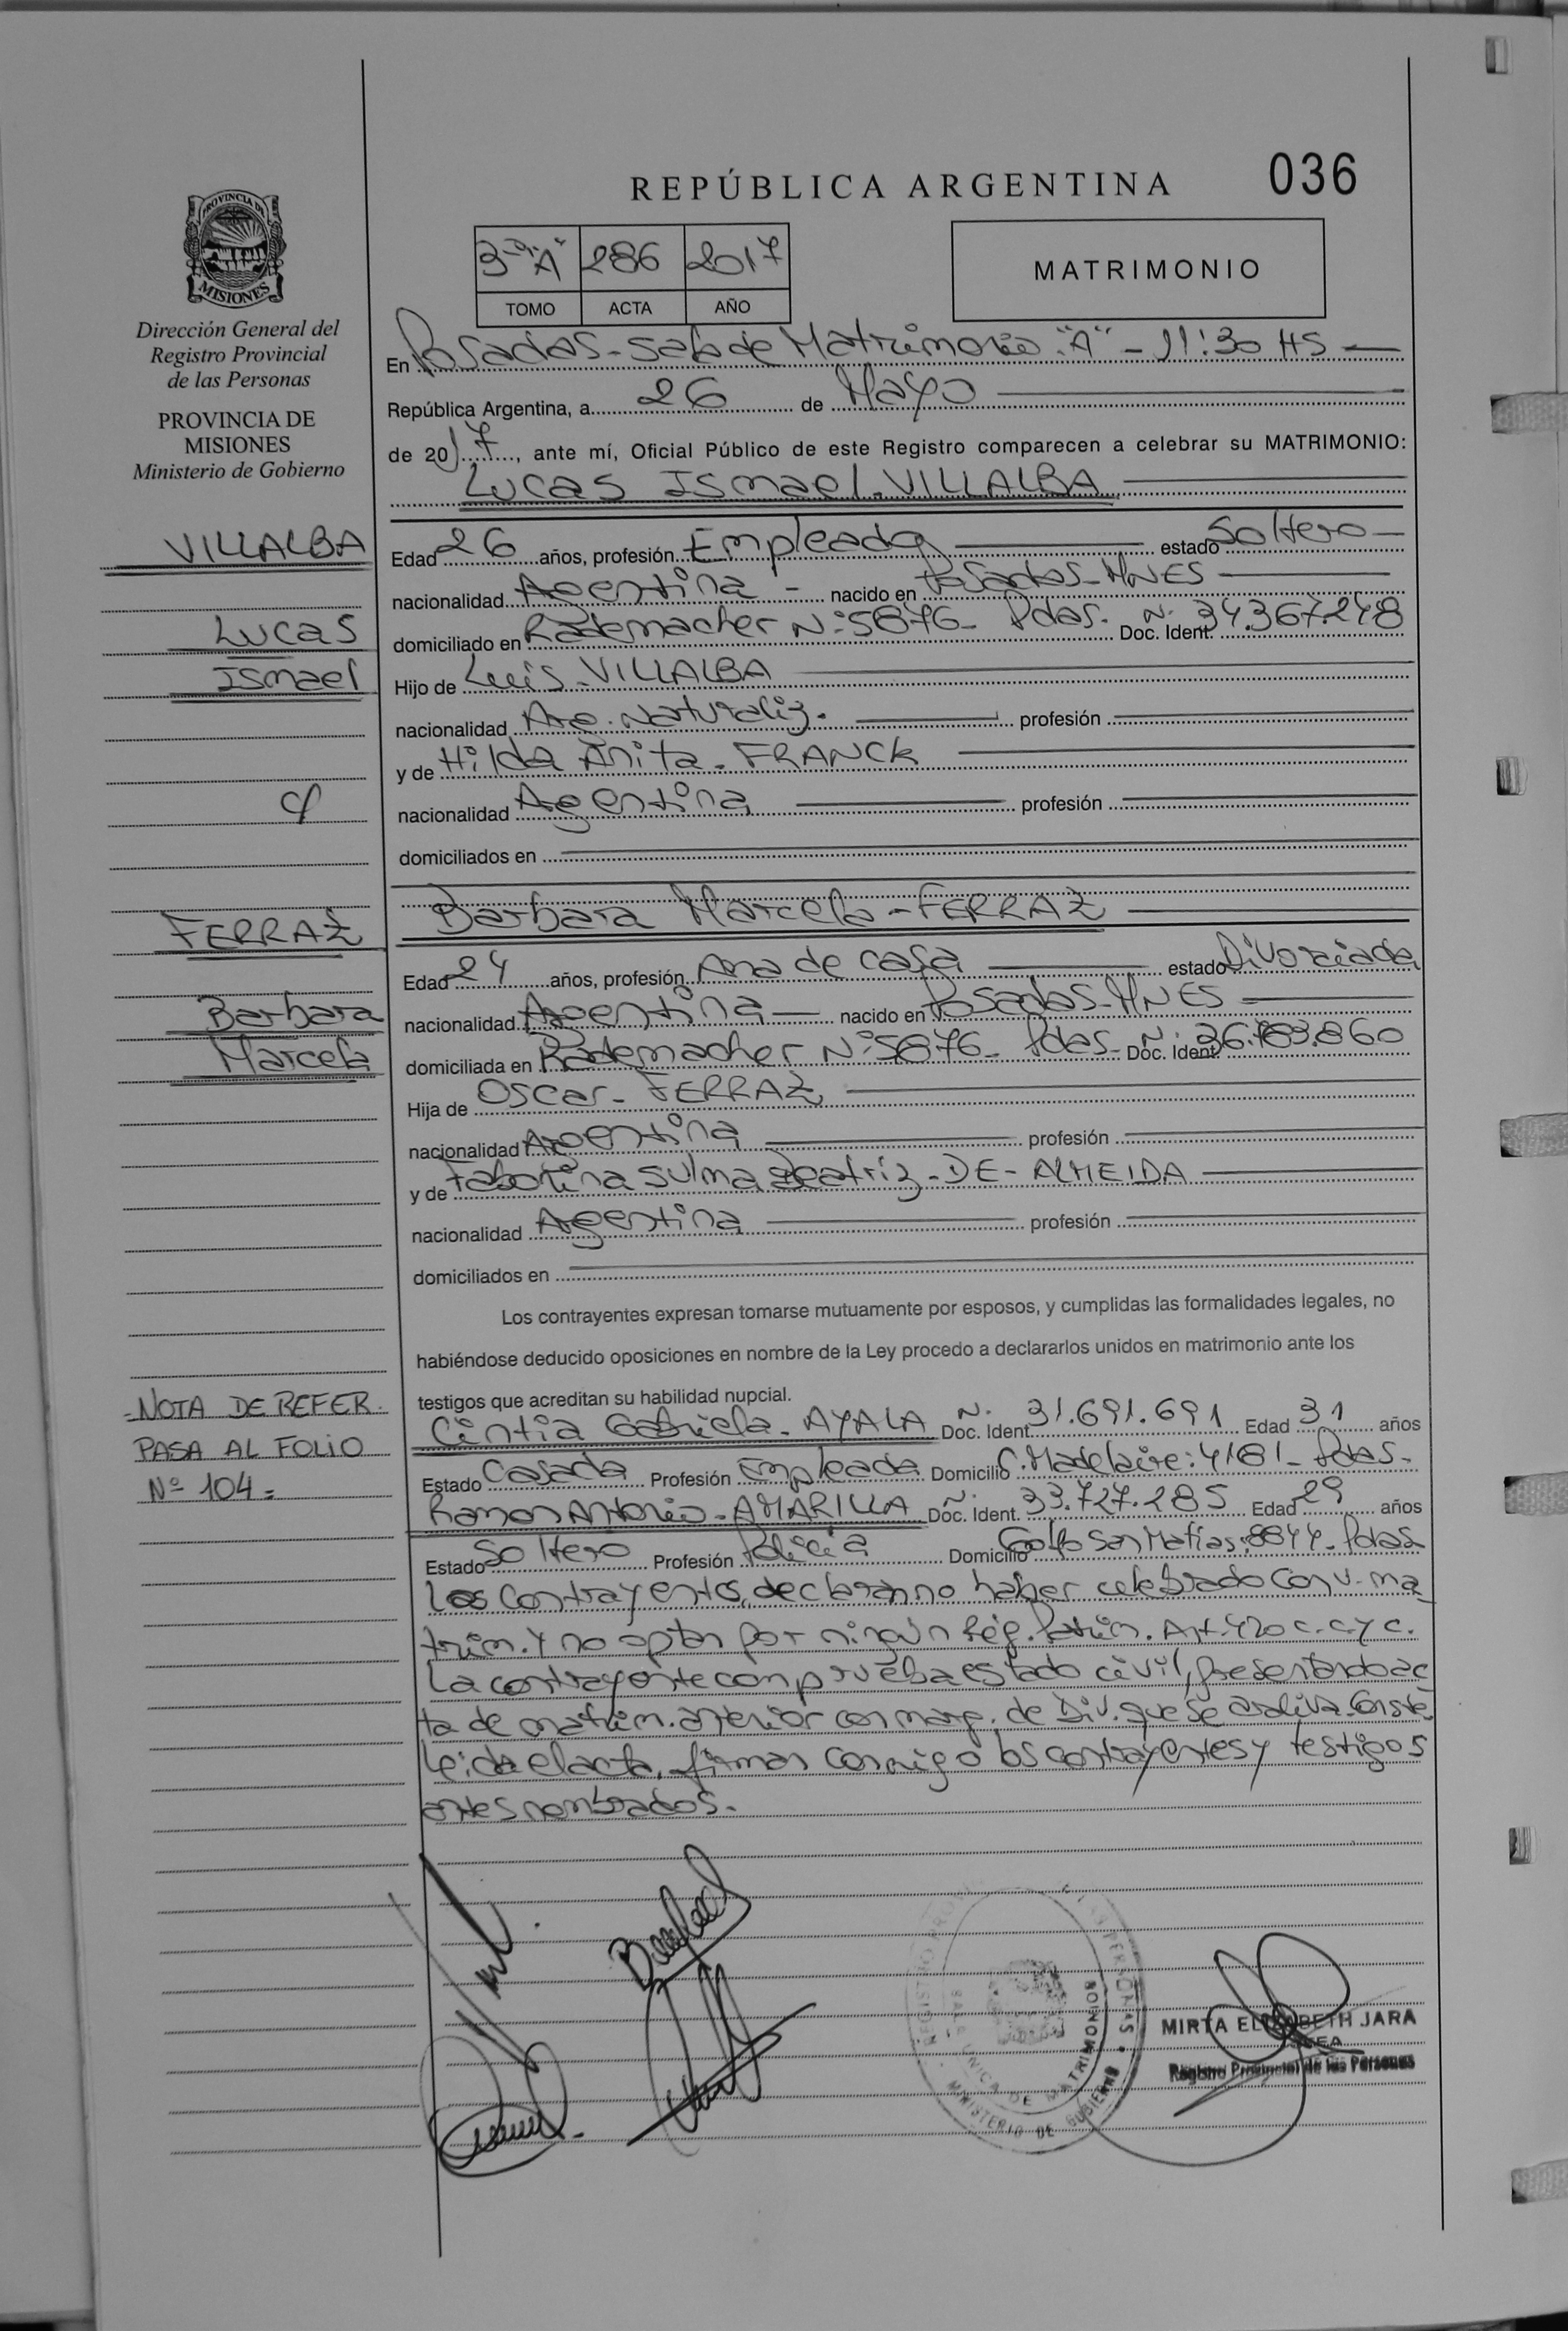 REPÚBLICA ARGENTINA
036
PROVINCIA DE
MISIONES
3º "A" 286 2017
TOMO ACTA AÑO
MATRIMONIO
Dirección General del
Registro Provincial
de las Personas
PROVINCIA DE
MISIONES
Ministerio de Gobierno
En Posadas - Sala de Matrimonio "A" - 11:30 HS
República Argentina, a 26 de Mayo
de 2017, ante mí, Oficial Público de este Registro comparecen a celebrar su MATRIMONIO:
Lucas Ismael - VILLALBA
VILLALBA
Lucas
Ismael
c/
Edad 26 años, profesión Empleado estado Soltero
nacionalidad Argentina - nacido en Posadas - MNES
domiciliado en Rademacher Nº 5876 - Pdas. Doc. Ident. Nº 34.367.248
Hijo de Luis - VILLALBA
nacionalidad Arg. Naturaliz. profesión
y de Hilda Anita - FRANCK
nacionalidad Argentina profesión
domiciliados en
Barbara Marcela - FERRAZ
FERRAZ
Barbara
Marcela
Edad 24 años, profesión Ama de casa estado Divorciada
nacionalidad Argentina nacido en Posadas - MNES
domiciliada en Rademacher Nº 5876 - Pdas - Doc. Ident. Nº 36.783.860
Hija de Oscar - FERRAZ
nacionalidad Argentina profesión
y de Sulma Beatriz - DE - ALMEIDA
nacionalidad Argentina profesión
domiciliados en
Los contrayentes expresan tomarse mutuamente por esposos, y cumplidas las formalidades legales, no
habiéndose deducido oposiciones en nombre de la Ley procedo a declararlos unidos en matrimonio ante los
testigos que acreditan su habilidad nupcial.
- NOTA DE REFER.
PASA AL FOLIO
Nº 104 =
Cintia Gabriela - AYALA Doc. Ident. Nº 31.691.691 Edad 31 años
Estado Casada Profesión Empleada Domicilio C. Madelaire: 4181 - Pdas -
Ramon Antonio - AMARILLA Doc. Ident. Nº 33.727.285 Edad 29 años
Estado Soltero Profesión Policia Domicilio Golfo San Matias: 8844 - Pdas
Los contrayentes, declaran no haber celebrado conv. ma-
trim. y no optan por ningún Rég. Patrim. Art. 420 c. c. y c.
La contrayente comprueba estado civil, presentando ac
ta de matrim. anterior con marg. de Div. que se archiva. Conste
Leida el acta, firman conmigo los contrayentes y testigos
antes nombrados.
SALA UNICA DE MATRIMONIOS
MINISTERIO DE GOBIERNO
MIRTA ELIZABETH JARA
Registro Provincial de las Personas